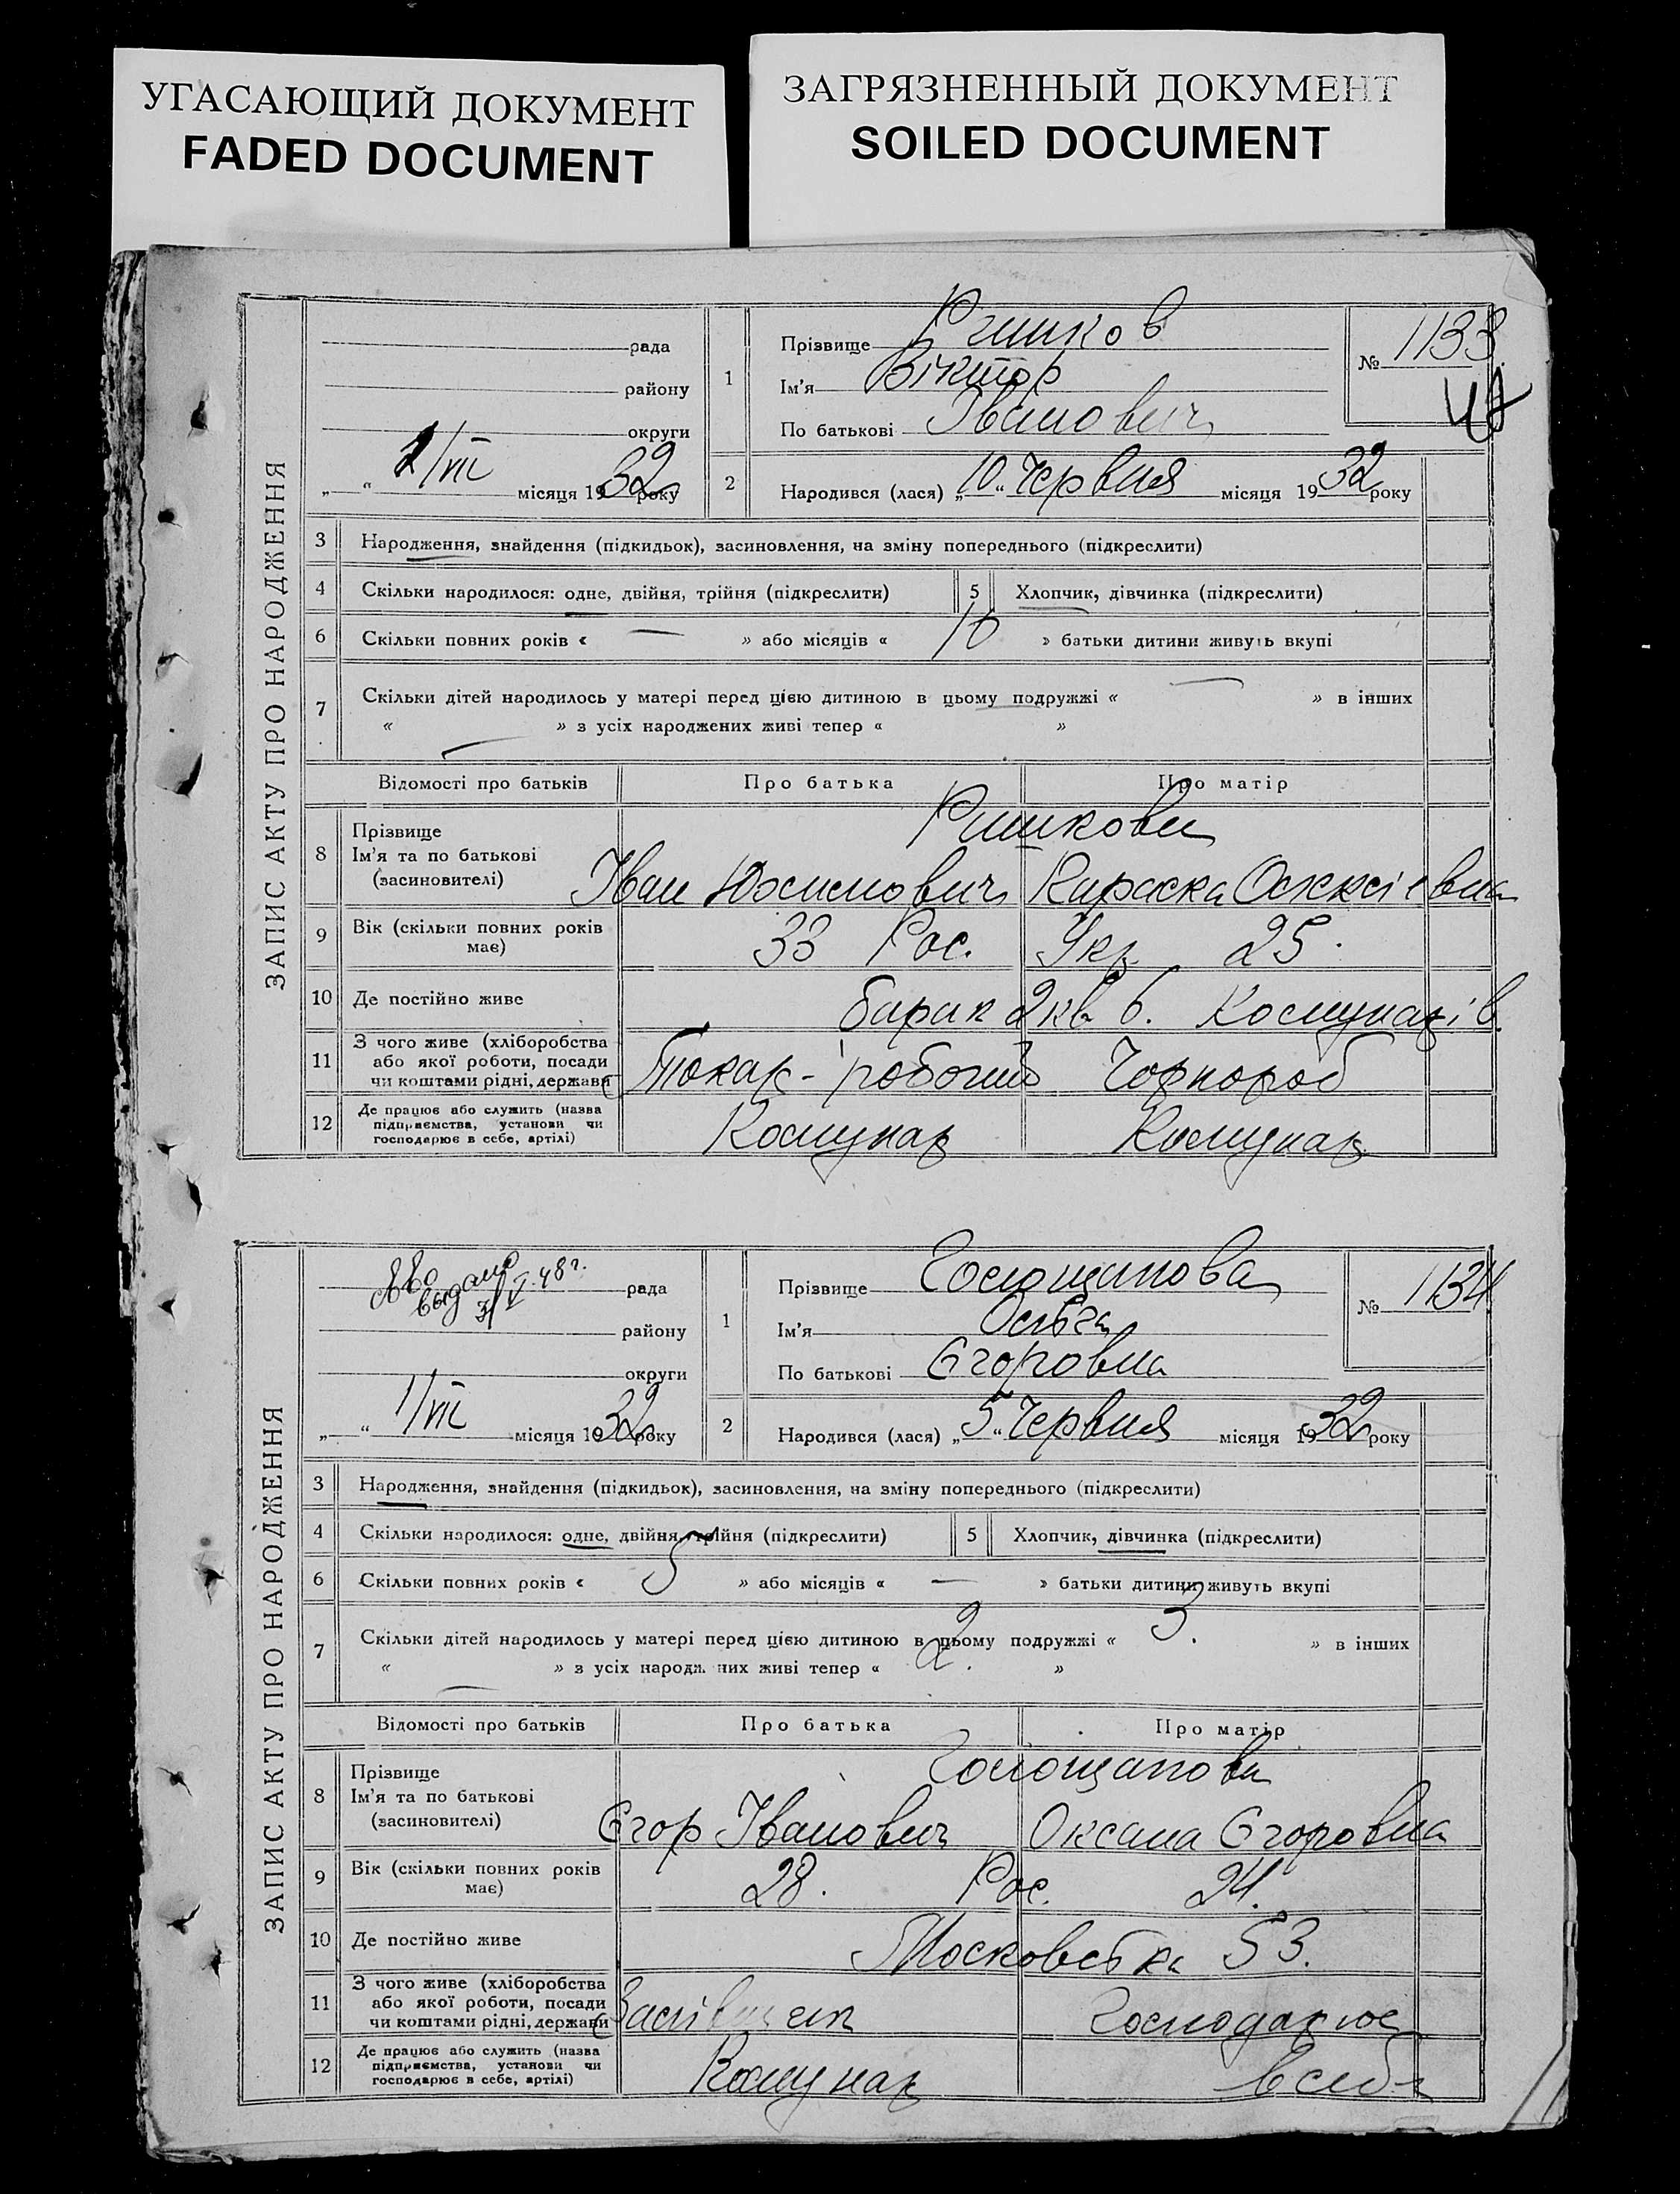 УГАСАЮЩИЙ ДОКУМЕНТ
FADED DOCUMENT
ЗАГРЯЗНЕННЫЙ ДОКУМЕНТ
SOILED DOCUMENT
ЗАПИС АКТУ ПРО НАРОДЖЕННЯ
рада
району
округи
„ “ 1/VII місяця 1932 року
1 Прізвище Ришков
Ім'я Віктор
По батькові Іванович
№ 1133
2 Народився (лася) „10“ Червня місяця 1932 року
3 Народження, знайдення (підкидьок), засиновлення, на зміну попереднього (підкреслити)
4 Скільки народилося: одне, двійня, трійня (підкреслити) 5 Хлопчик, дівчинка (підкреслити)
6 Скільки повних років « — » або місяців « 10 » батьки дитини живуть вкупі
7 Скільки дітей народилось у матері перед цією дитиною в цьому подружжі « — » в інших
« — » з усіх народжених живі тепер « »
Відомості про батьків Про батька Про матір
8 Прізвище Ришкови
Ім'я та по батькові
(засиновителі) Іван Юхимович
9 Вік (скільки повних років має) 33 Рос. Укр. 25.
10 Де постійно живе барак 2 кв 6. Комунарів
11 З чого живе (хліборобства
або якої роботи, посади
чи коштами рідні, держави) Токар - робочий Чорнороб
12 Де працює або служить (назва
підприємства, установи чи
господарює в себе, артілі) Комунар Комунар
ЗАПИС АКТУ ПРО НАРОДЖЕННЯ
выдано
рада
району
округи
„ “ 1/VII місяця 1932 року
1 Прізвище Голощапова
Ім'я Ольга
По батькові Єгоровна
№ 1134
2 Народився (лася) „5“ Червня місяця 1932 року
3 Народження, знайдення (підкидьок), засиновлення, на зміну попереднього (підкреслити)
4 Скільки народилося: одне, двійня, трійня (підкреслити) 5 Хлопчик, дівчинка (підкреслити)
6 Скільки повних років « 5 » або місяців « — » батьки дитини живуть вкупі
7 Скільки дітей народилось у матері перед цією дитиною в цьому подружжі « 3. » в інших
« — » з усіх народжених живі тепер « 2. »
Відомості про батьків Про батька Про матір
8 Прізвище Голощапови
Ім'я та по батькові
(засиновителі) Єгор Іванович Оксана Єгоровна
9 Вік (скільки повних років має) 28. Рос. 24.
10 Де постійно живе Московська 53.
11 З чого живе (хліборобства
або якої роботи, посади
чи коштами рідні, держави) Господарює
12 Де працює або служить (назва
підприємства, установи чи
господарює в себе, артілі) Комунар в себе